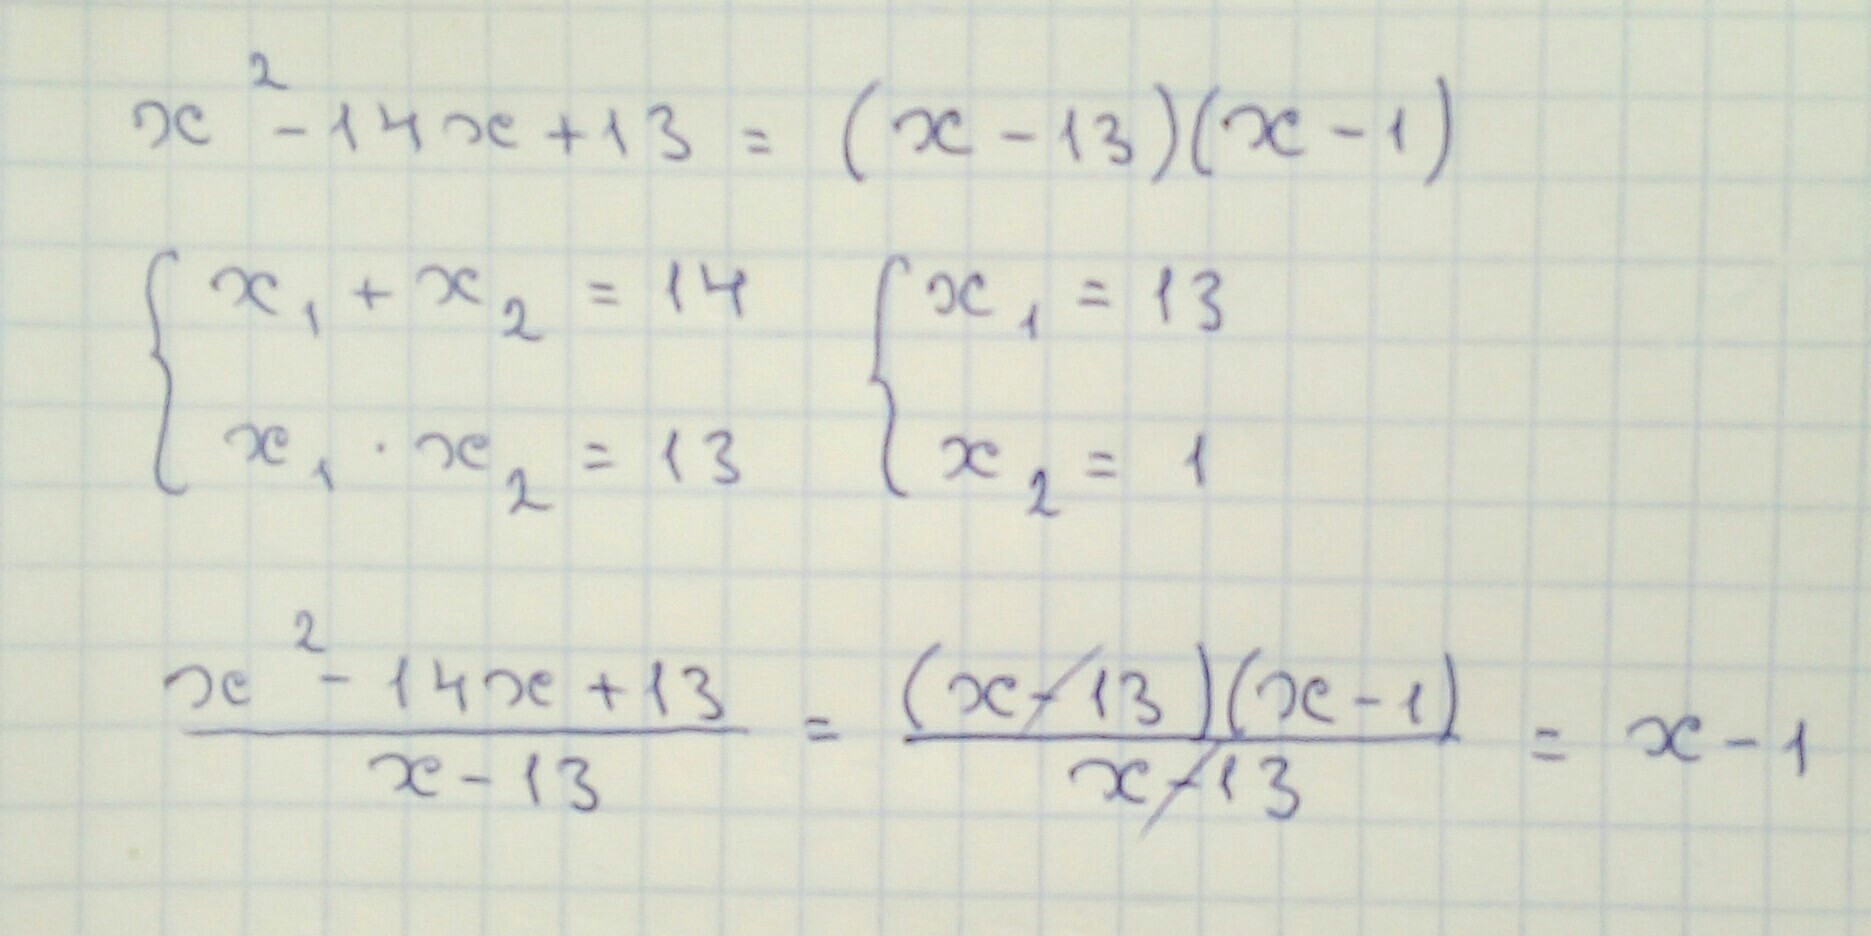 x² - 14x + 13 = (x - 13)(x - 1)
{ x₁ + x₂ = 14 { x₁ = 13
x₁ · x₂ = 13 x₂ = 1
(x² - 14x + 13)/(x - 13) = ((x - 13)(x - 1))/(x - 13) = x - 1